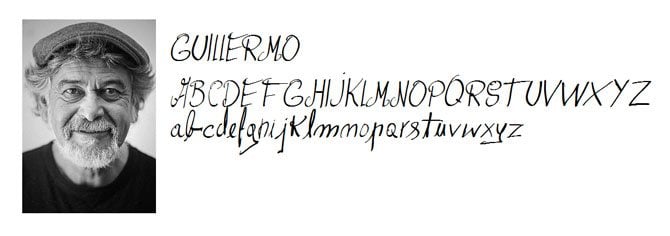 GUILLERMO
ABCDEFGHIJKLMNOPQRSTUVWXYZ
abcdefghijklmnopqrstuvwxyz